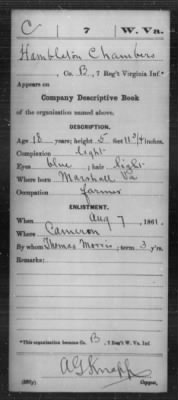 C 7 W. Va.
Hambleton Chambers
, Co. B, 7 Reg't Virginia Inf.*
Appears on
Company Descriptive Book
of the organization named above.
DESCRIPTION.
Age 18 years; height 5 feet 11 3/4 inches.
Complexion light
Eyes blue; hair light
Where born Marshall Va
Occupation farmer
ENLISTMENT.
When Aug 7, 1861.
Where Cameron
By whom Thomas Morris; term 3 y'rs.
Remarks:
*This organization became Co. B, 7 Reg't W. Va. Inf.
A G Knapp
Copyist.